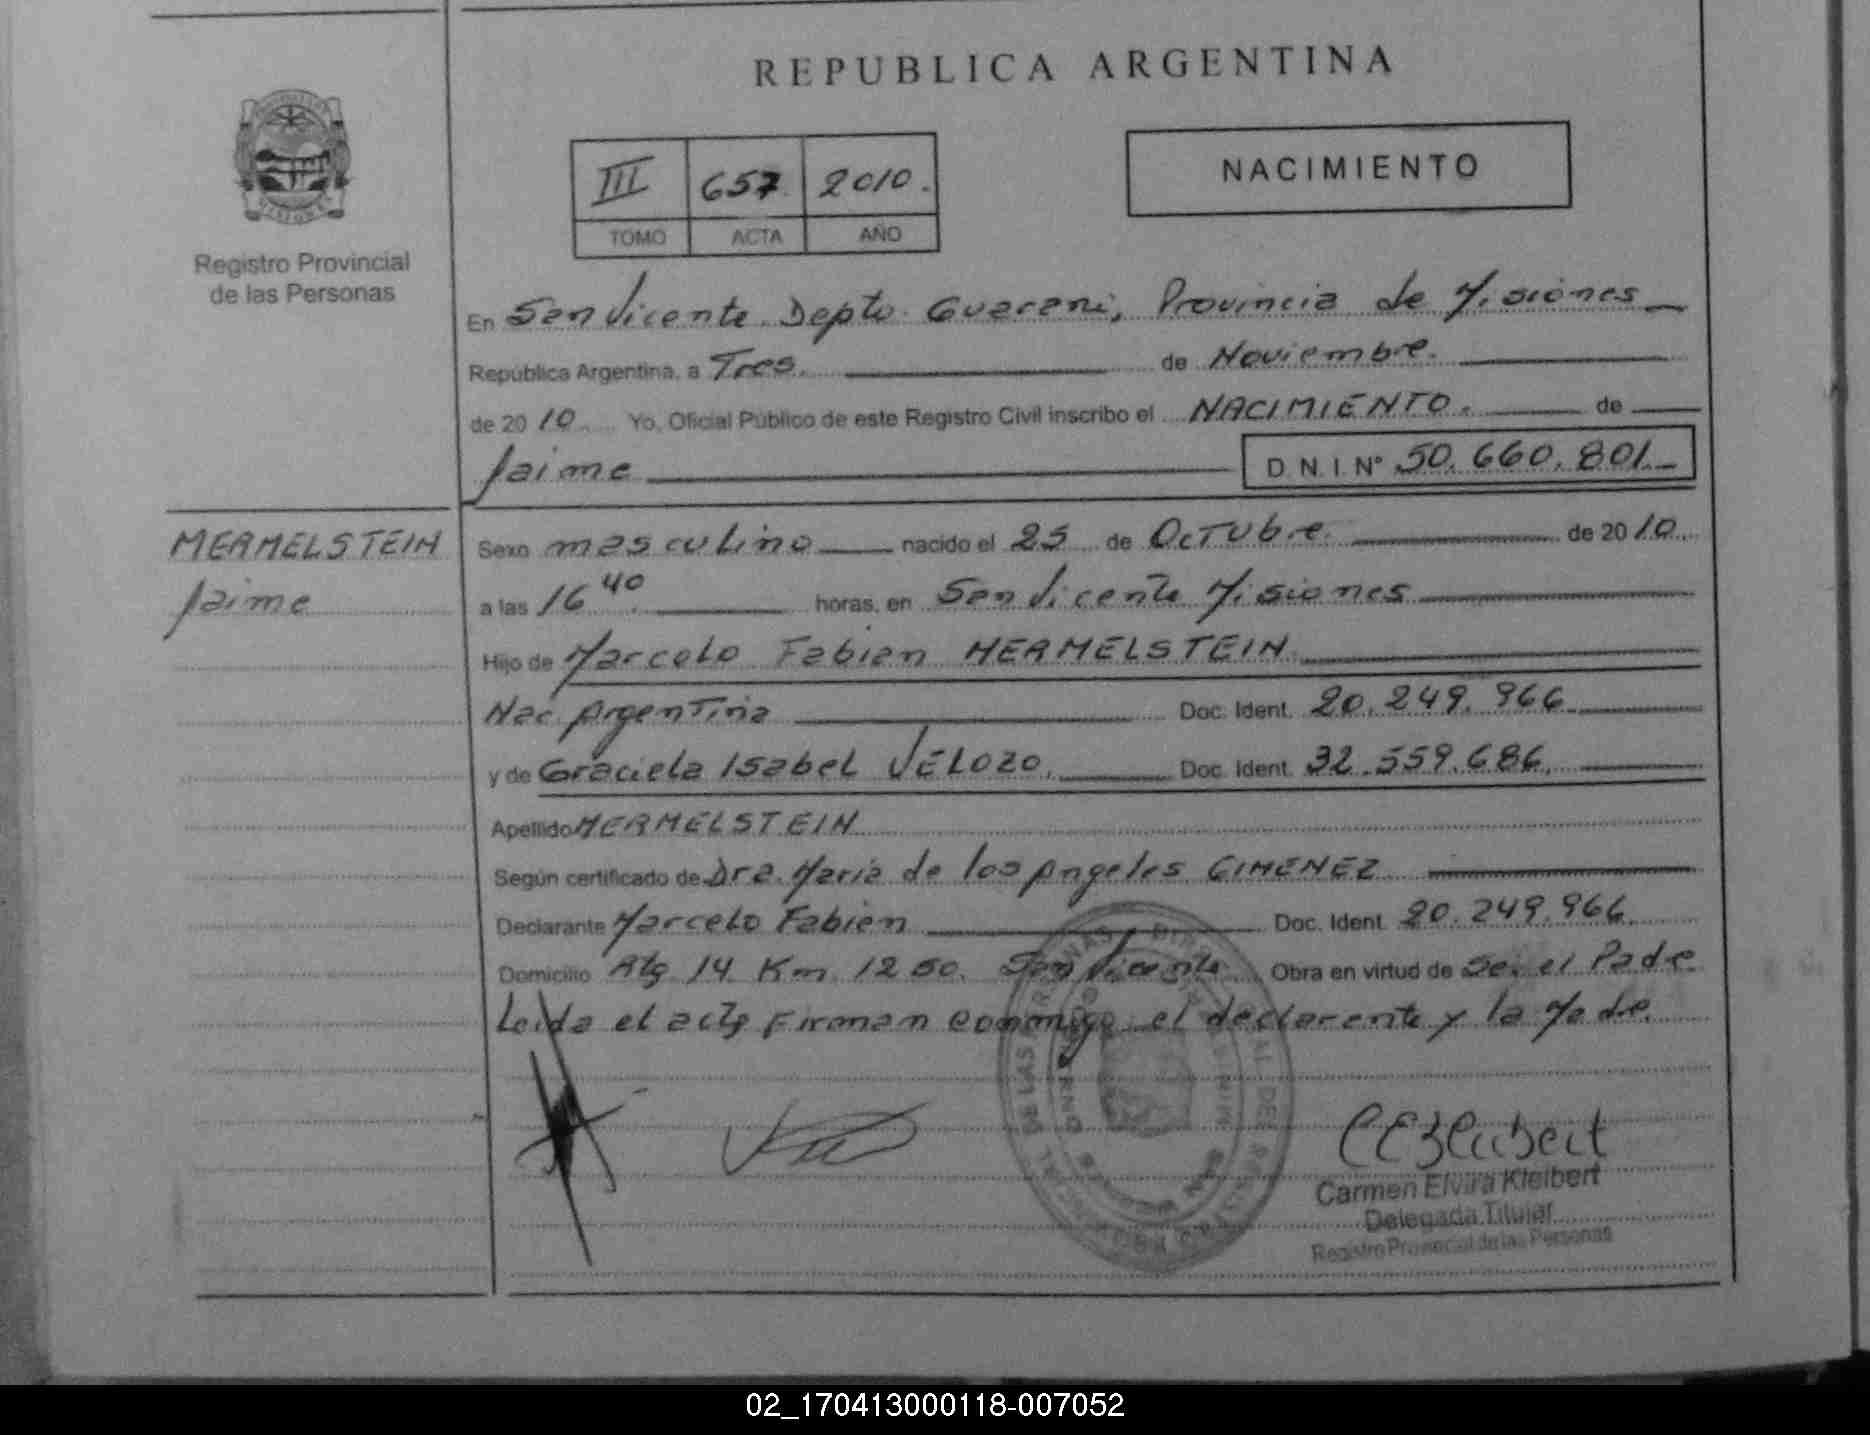 REPUBLICA ARGENTINA
NACIMIENTO
III 657 2010.
TOMO ACTA AÑO
Registro Provincial
de las Personas
En San Vicente Depto Guarani, Provincia de Misiones
República Argentina, a Tres. de Noviembre.
de 2010 Yo, Oficial Público de este Registro Civil inscribo el NACIMIENTO. de
Jaime D. N. I. N° 50.660.801.
MERMELSTEIN
Jaime
Sexo masculino nacido el 25 de Octubre. de 2010.
a las 16 40 horas, en San Vicente Misiones
Hijo de Marcelo Fabian MERMELSTEIN
Nac. Argentina Doc. Ident. 20.249.966
y de Graciela Isabel VELOZO. Doc. Ident. 32.559.686.
Apellido MERMELSTEIN
Según certificado de Dra. Maria de los Angeles GIMENEZ
Declarante Marcelo Fabian Doc. Ident. 20.249.966.
Domicilio Rta 14 Km 1250. San Vicente Obra en virtud de Se. el Padre
Leida el acta Firman conmigo el declarante y la Madre.
Carmen Elvira Kleibert
Delegada Titular
Registro Provincial de las Personas
02_170413000118-007052